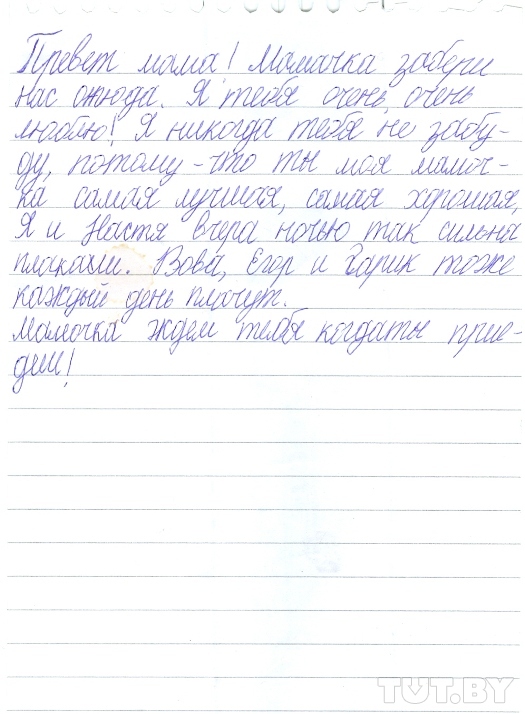 Превет мама! Мамочка забери
нас отюда. Я тебя очень, очень
люблю! Я никогда тебя не забу-
ду, потому-что ты моя мамоч-
ка самая лучшая, самая хорошая,
Я и Настя вчера ночью так сильна
плакали. Вова, Егор и Гарик тоже
каждый день плачут.
Мамочка ждем тебя когдаты прие-
диш!
TUT.BY